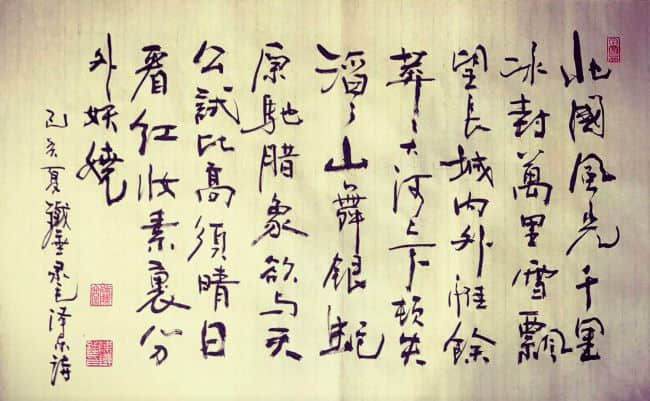 北國風光千里
冰封萬里雪飄
望長城内外惟餘
莽〻大河上下頓失
滔〻山舞銀蛇
原馳腊象欲与天
公試比高須晴日
看红妆素裹分
外妖嬈
己亥夏录毛泽东詩